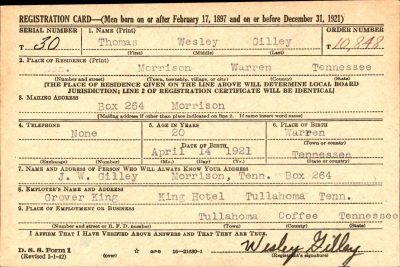 REGISTRATION CARD—(Men born on or after February 17, 1897 and on or before December 31, 1921)
SERIAL NUMBER 1. NAME (Print) ORDER NUMBER
T 30 Thomas Wesley Gilley T 10,848
(First) (Middle) (Last)
2. PLACE OF RESIDENCE (Print)
Morrison Warren Tennessee
(Number and street) (Town, township, village, or city) (County) (State)
[THE PLACE OF RESIDENCE GIVEN ON THE LINE ABOVE WILL DETERMINE LOCAL BOARD
JURISDICTION; LINE 2 OF REGISTRATION CERTIFICATE WILL BE IDENTICAL]
3. MAILING ADDRESS
Box 264 Morrison
[Mailing address if other than place indicated on line 2. If same insert word same]
4. TELEPHONE 5. AGE IN YEARS 6. PLACE OF BIRTH
None 20 Warren
DATE OF BIRTH (Town or county)
April 14 1921 Tennessee
(Exchange) (Number) (Mo.) (Day) (Yr.) (State or country)
7. NAME AND ADDRESS OF PERSON WHO WILL ALWAYS KNOW YOUR ADDRESS
J. W. Gilley Morrison, Tenn. Box 264
8. EMPLOYER'S NAME AND ADDRESS
Grover King King Hotel Tullahoma Tenn.
9. PLACE OF EMPLOYMENT OR BUSINESS
Tullahoma Coffee Tennessee
(Number and street or R. F. D. number) (Town) (County) (State)
I AFFIRM THAT I HAVE VERIFIED ABOVE ANSWERS AND THAT THEY ARE TRUE.
D. S. S. Form 1 Wesley Gilley
(Revised 1-1-42) (over) 16—21630-1 (Registrant's signature)